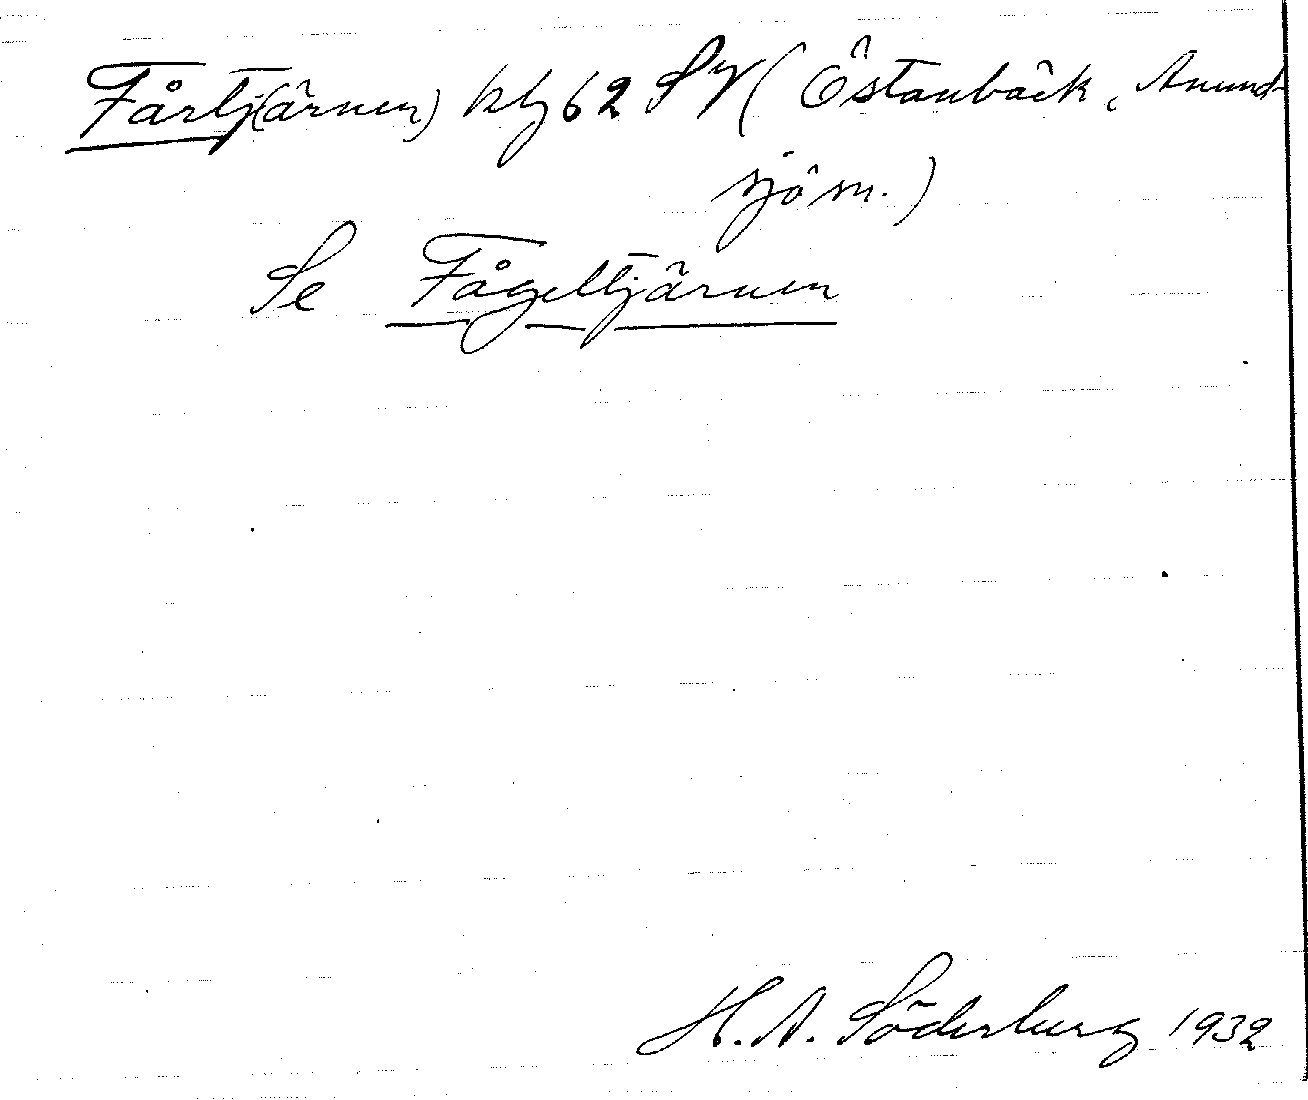 Fårtj(ärnen) kbg 62 SV (Östanbäck, Anund-
sjö sn.)
Se Fågeltjärnen
H. A. Söderberg 1932